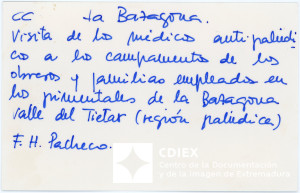 CC La Bazagona.
Visita de lo médico antipalúdi
co a los campamento de los
obreros y familias empleados en
los pimentales de la Bazagona
Valle del Tietar (región palúdica)
F. H. Pacheco.
CDIEX
Centro de la Documentación
y de la Imagen de Extremadura